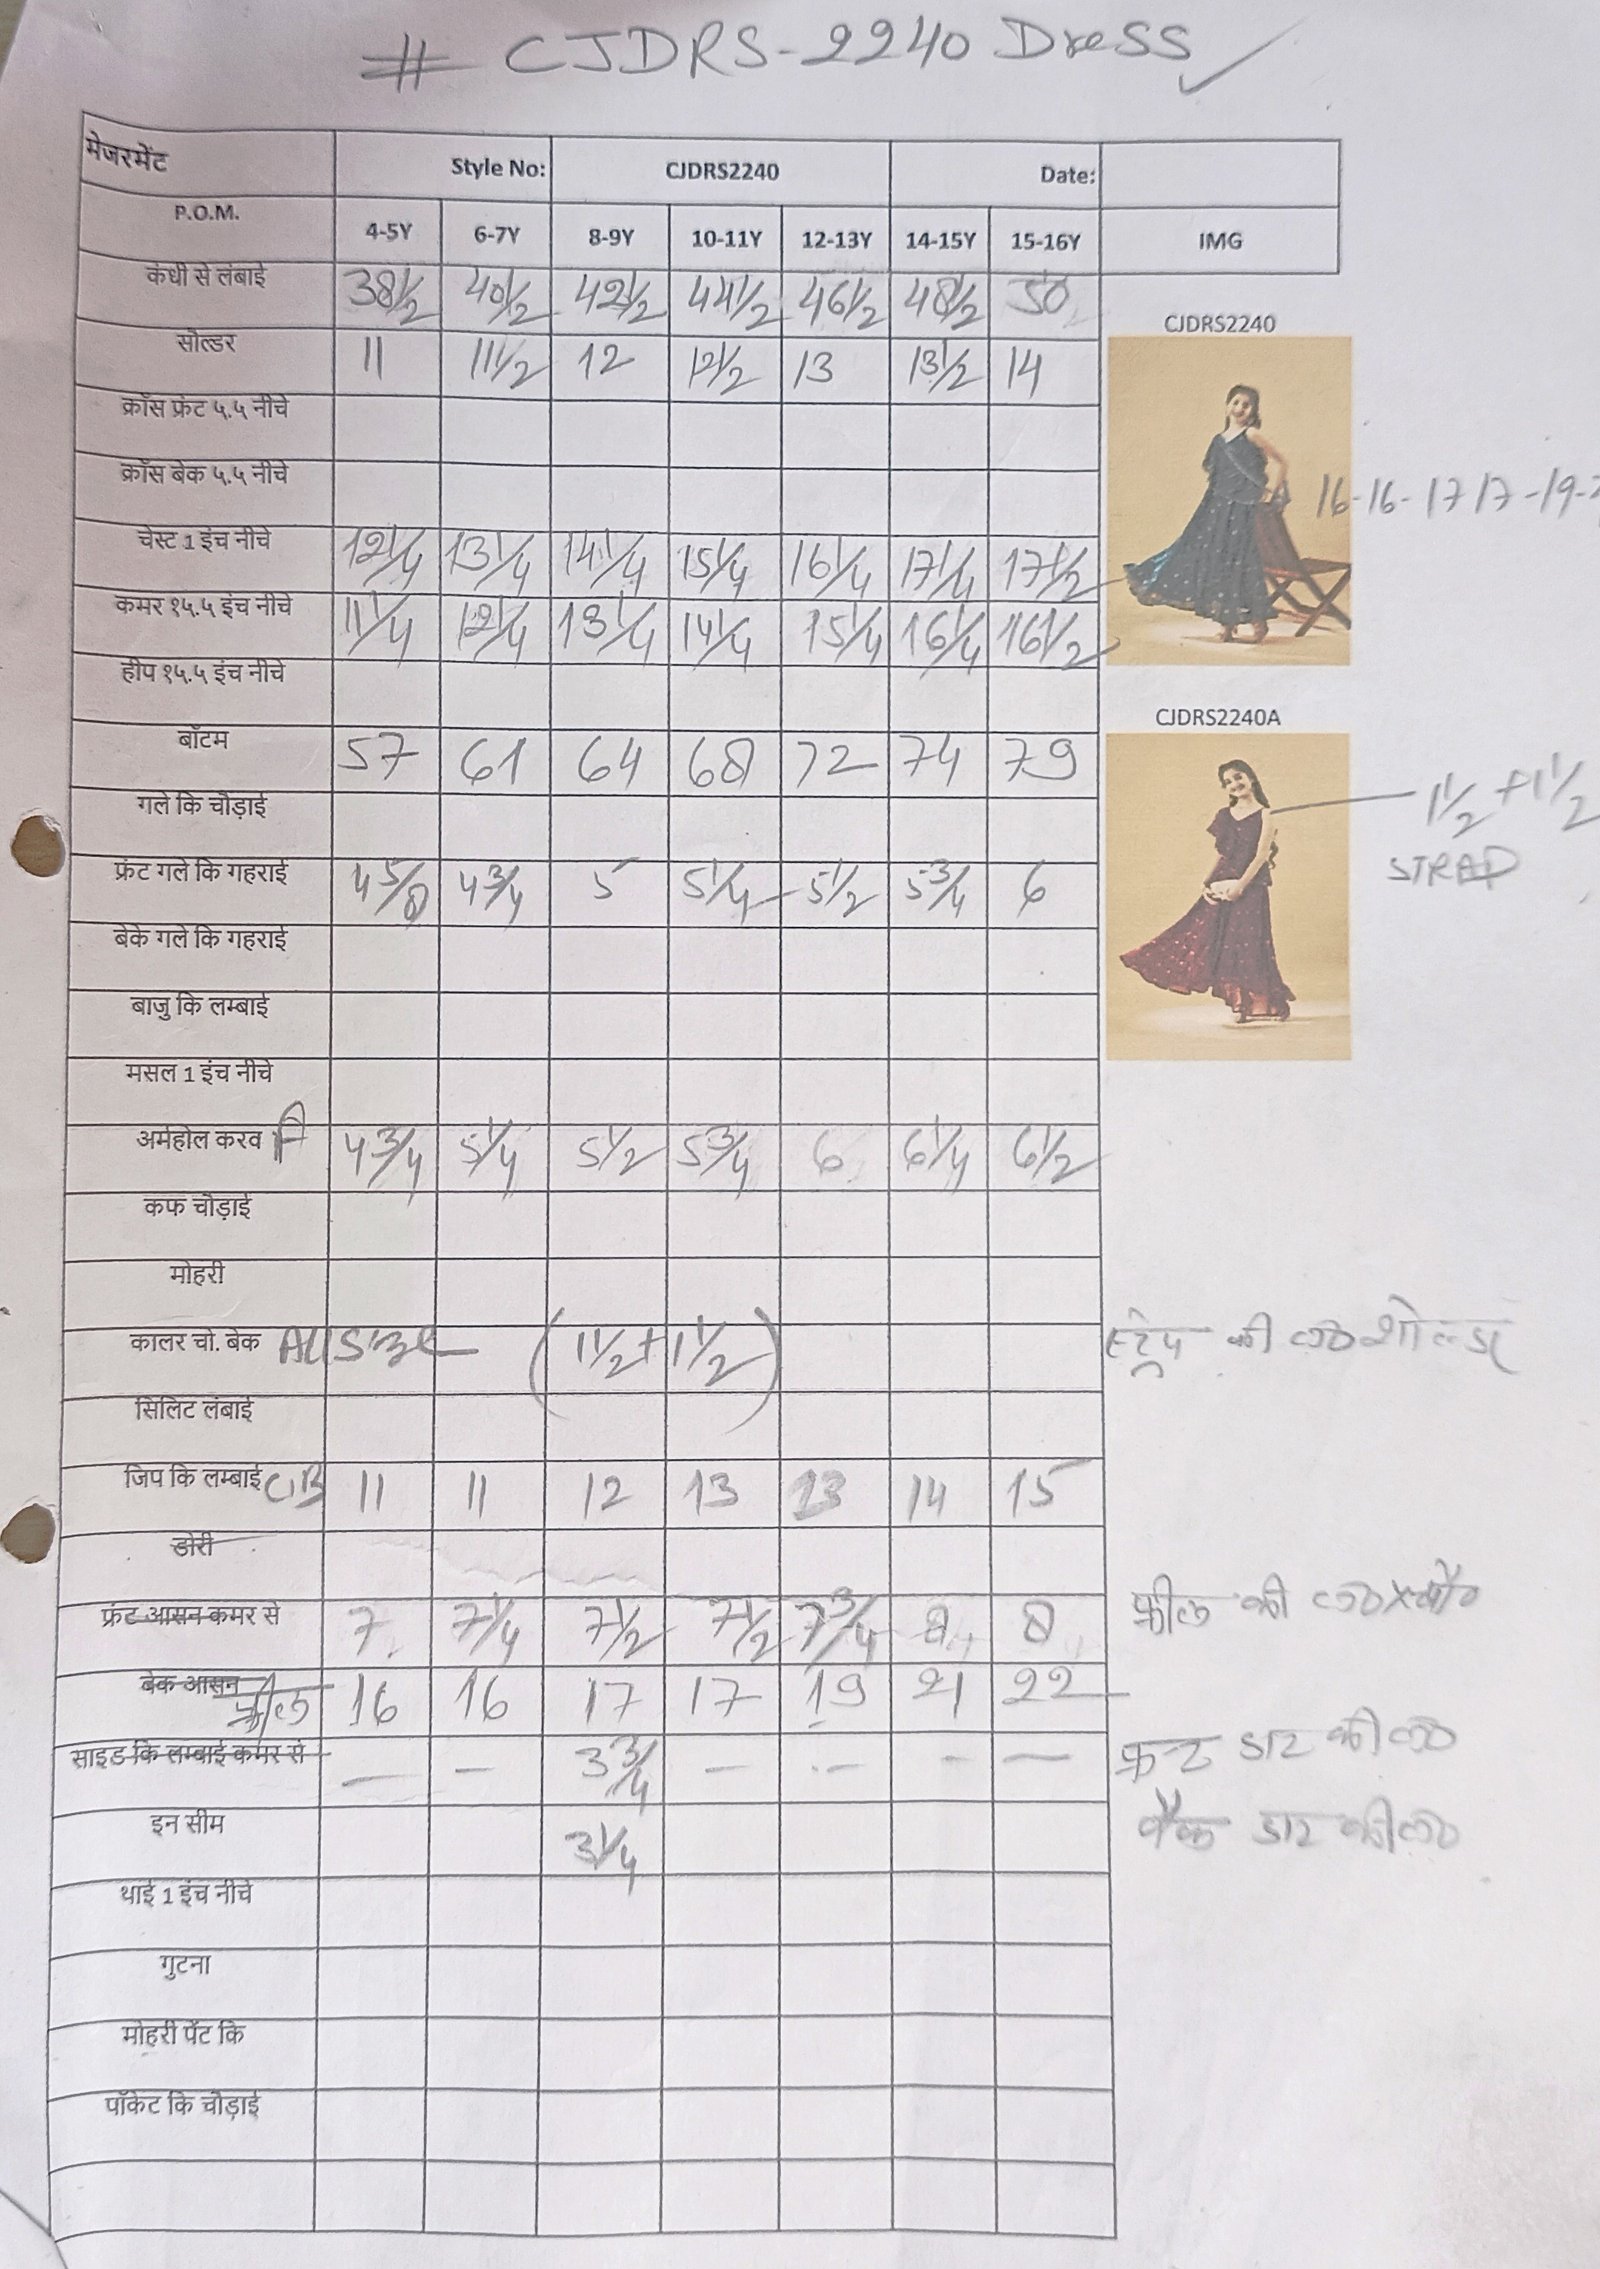 # CJDRS-2240 Dress ✓
मेजरमेंट Style No: CJDRS2240 Date:
P.O.M. 4-5Y 6-7Y 8-9Y 10-11Y 12-13Y 14-15Y 15-16Y IMG
कंधी से लंबाई 38 1/2 40 1/2 42 1/2 44 1/2 46 1/2 48 1/2 50
CJDRS2240
सोल्डर 11 11 1/2 12 12 1/2 13 13 1/2 14
क्रॉस फ्रंट ५.५ नीचे
क्रॉस बेक ५.५ नीचे
16-16-17 17-19-
चेस्ट 1 इंच नीचे 12 1/4 13 1/4 14 1/4 15 1/4 16 1/4 17 1/4 17 1/2
कमर १५.५ इंच नीचे 11 1/4 12 1/4 13 1/4 14 1/4 15 1/4 16 1/4 16 1/2
हीप १५.५ इंच नीचे
CJDRS2240A
बॉटम 57 61 64 68 72 74 79
गले कि चौड़ाई
1 1/2 + 1 1/2
STRAP
फ्रंट गले कि गहराई 4 5/8 4 3/4 5 5 1/4 5 1/2 5 3/4 6
बेके गले कि गहराई
बाजु कि लम्बाई
मसल 1 इंच नीचे
अर्महोल करव F 4 3/4 5 1/4 5 1/2 5 3/4 6 6 1/4 6 1/2
कफ चौड़ाई
मोहरी
कालर चो. बेक All Size (1 1/2 + 1 1/2) स्ट्रेप की ल० शोल्डर
सिलिट लंबाई
जिप कि लम्बाई C.B 11 11 12 13 13 14 15
डोरी
फ्रंट आसन कमर से 7 7 1/4 7 1/2 7 1/2 7 3/4 8 8 फ्रील की ल०xचौ०
बेक आसन फ्रील 16 16 17 17 19 21 22
साइड कि लम्बाई कमर से — — 3 3/4 — — — — फ्रन्ट डाट की ल०
इन सीम 3 1/4 बैक डाट की ल०
थाई 1 इंच नीचे
गुटना
मोहरी पेंट कि
पॉकेट कि चौड़ाई